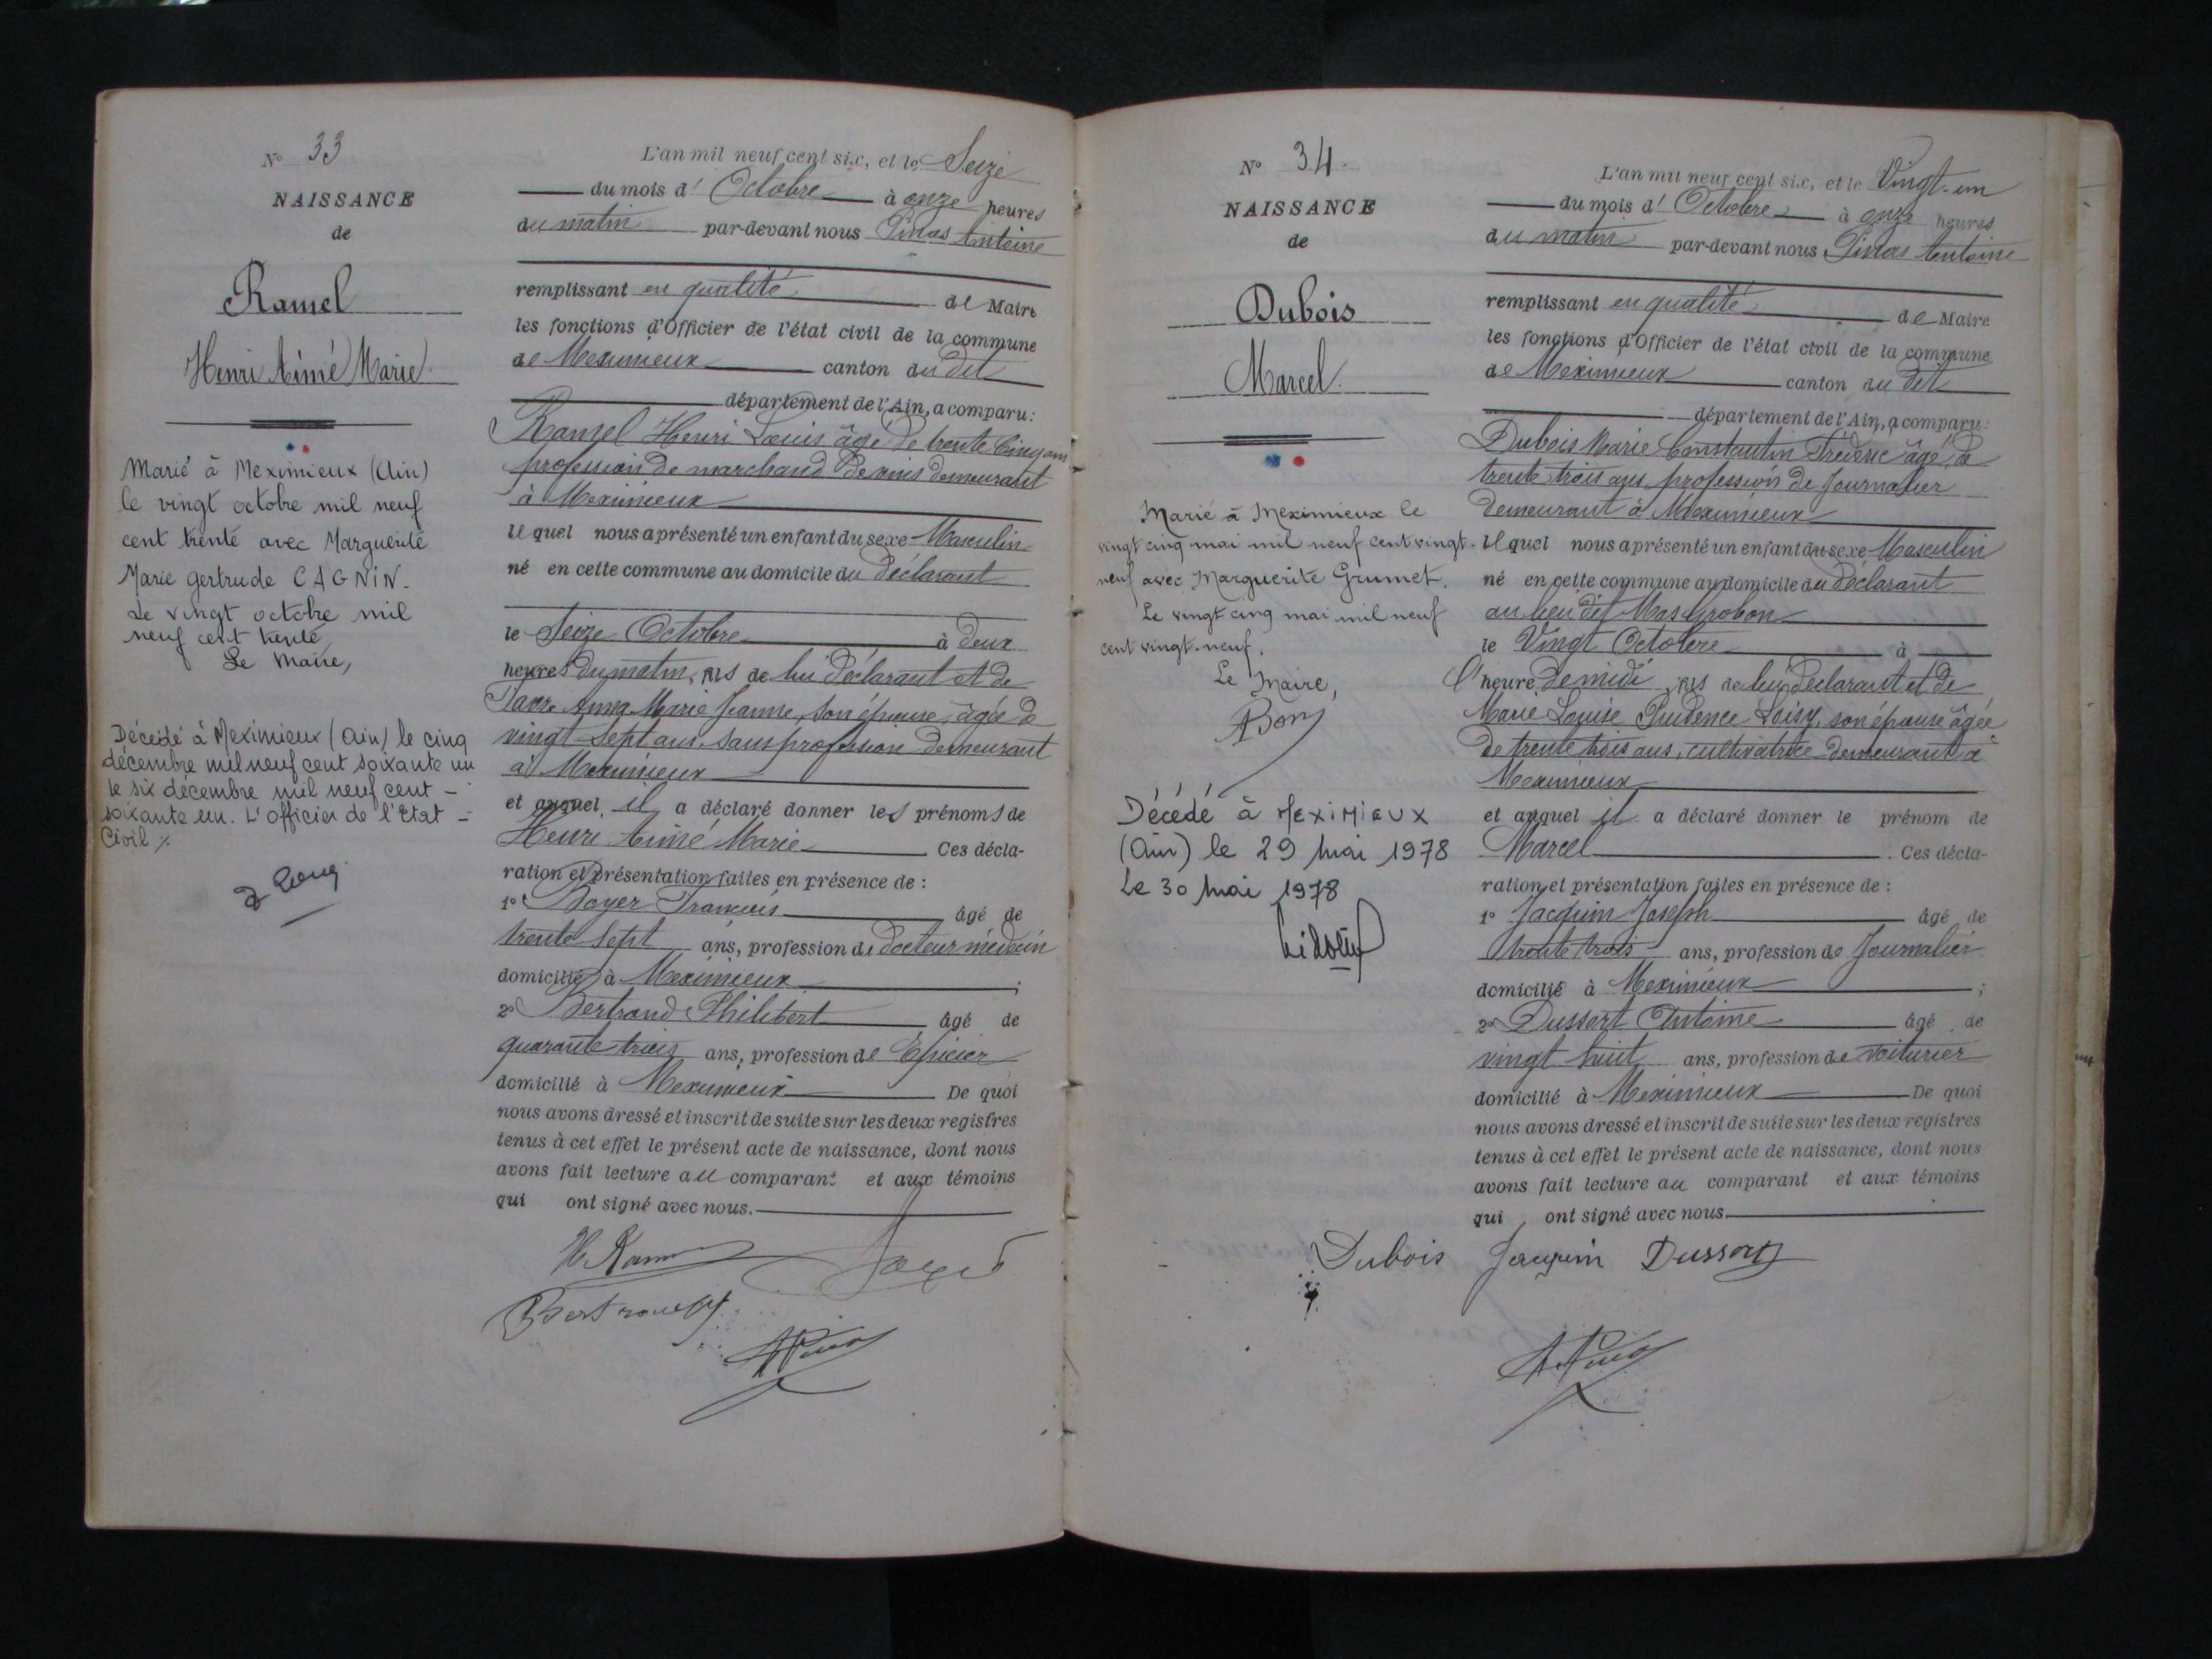 N° 33
NAISSANCE
de
Ramel
Henri Aimé Marie
Marié à Meximieux (Ain)
le vingt octobre mil neuf
cent trente avec Marguerite
Marie gertrude CAGNIN.
Le vingt octobre mil
neuf cent trente
Le Maire,
Décédé à Meximieux (Ain) le cinq
décembre mil neuf cent soixante un
le six décembre mil neuf cent -
soixante un. L'officier de l'Etat -
Civil ./.
L'an mil neuf cent six, et le Seize
du mois d'Octobre à onze heures
du matin par-devant nous Pinas Antoine
remplissant en qualité de Maire
les fonctions d'Officier de l'état civil de la commune
de Meximieux canton du dit
département de l'Ain, a comparu:
Ramel Henri Louis âgé de trente cinq ans
profession de marchand de vins demeurant
à Meximieux
lequel nous a présenté un enfant du sexe Masculin
né en cette commune au domicile du déclarant
le Seize Octobre à deux
heures du matin, fils de lui déclarant et de
Anna Marie Jeanne, son épouse, âgée de
vingt sept ans, sans profession demeurant
à Meximieux
et auquel il a déclaré donner les prénoms de
Henri Aimé Marie Ces décla-
ration et présentation faites en présence de :
1° Boyer François âgé de
trente sept ans, profession de docteur médecin
domicilié à Meximieux ;
2° Bertrand Philibert âgé de
quarante trois ans, profession de Épicier
domicilié à Meximieux De quoi
nous avons dressé et inscrit de suite sur les deux registres
tenus à cet effet le présent acte de naissance, dont nous
avons fait lecture au comparant et aux témoins
qui ont signé avec nous.
H Ramel Boyer
Bertrand
A Pinas
N° 34.
NAISSANCE
de
Dubois
Marcel.
Marié à Meximieux le
vingt cinq mai mil neuf cent vingt-
neuf avec Marguerite Grumet.
Le vingt cinq mai mil neuf
cent vingt-neuf.
Le Maire,
Décédé à MEXIMIEUX
(Ain) le 29 Mai 1978
Le 30 Mai 1978
L'an mil neuf cent six, et le Vingt-un
du mois d'Octobre à onze heures
du matin par-devant nous Pinas Antoine
remplissant en qualité de Maire
les fonctions d'Officier de l'état civil de la commune
de Meximieux canton du dit
département de l'Ain, a comparu:
Dubois Marie Constantin Fréderic âgé de
trente trois ans profession de Journalier
demeurant à Meximieux
lequel nous a présenté un enfant du sexe Masculin
né en cette commune au domicile du déclarant
au lieu dit
le Vingt Octobre à
l'heure de midi, fils de lui déclarant et de
Marie Louise Prudence Loisy son épouse âgée
de trente trois ans, cultivatrice demeurant à
Meximieux
et auquel il a déclaré donner le prénom de
Marcel . Ces décla-
ration et présentation faites en présence de :
1° Jacquin Joseph âgé de
trente trois ans, profession de Journalier
domicilié à Meximieux ;
2° Dussert Antoine âgé de
vingt huit ans, profession de voiturier
domicilié à Meximieux De quoi
nous avons dressé et inscrit de suite sur les deux registres
tenus à cet effet le présent acte de naissance, dont nous
avons fait lecture au comparant et aux témoins
qui ont signé avec nous
Dubois Jacquin Dussert
A Pinas